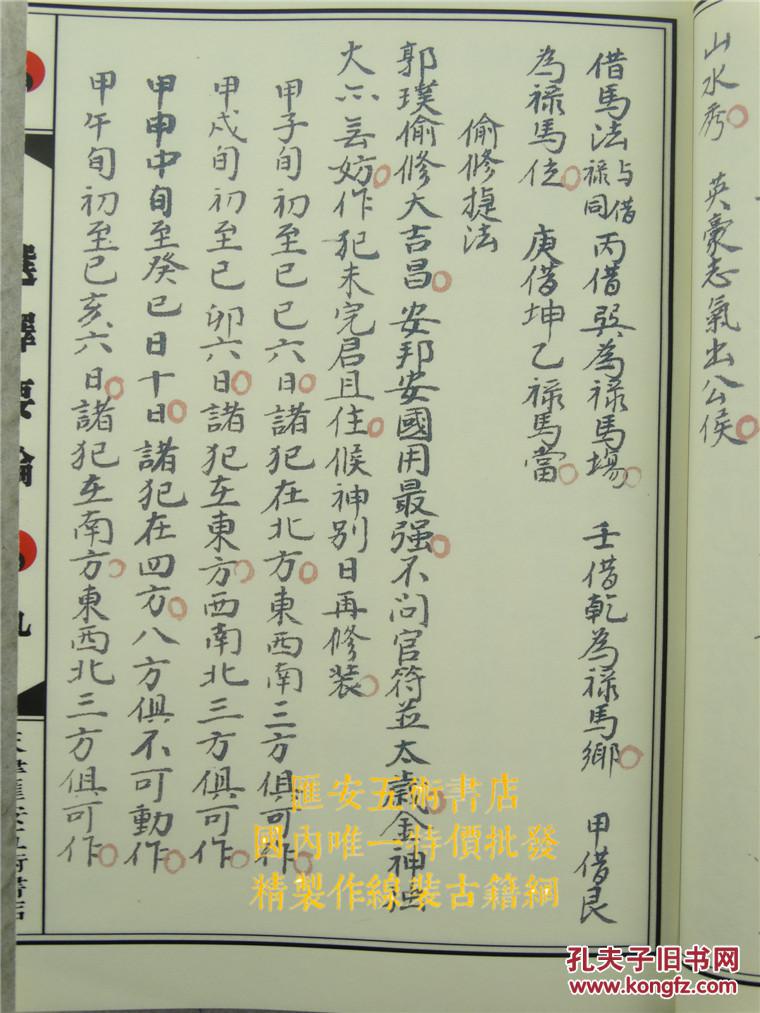 山水秀　英豪志氣出公侯。
借馬法 與借祿同 丙借巽為祿馬場。　壬借乾為祿馬鄉。　甲借艮
為祿馬位。　庚借坤乙祿馬當。
偷修捷法
郭璞偷修大吉昌。安邦安國用最强。不问官符並太歲。金神
火亦無妨。作犯未完君且住。候神別日再修装。
甲子旬初至己巳六日。諸犯在北方。東西南三方俱可作。
甲戌旬初至己卯六日。諸犯在東方。西南北三方俱可作。
甲申中旬至癸巳日十日。諸犯在四方。八方俱不可動作。
甲午旬初至己亥六日。諸犯在南方。東西北三方俱可作。
選擇要論
九
匯安五術書店
國內唯一特價批發
精製作線裝古籍網
孔夫子旧书网
www.kongfz.com